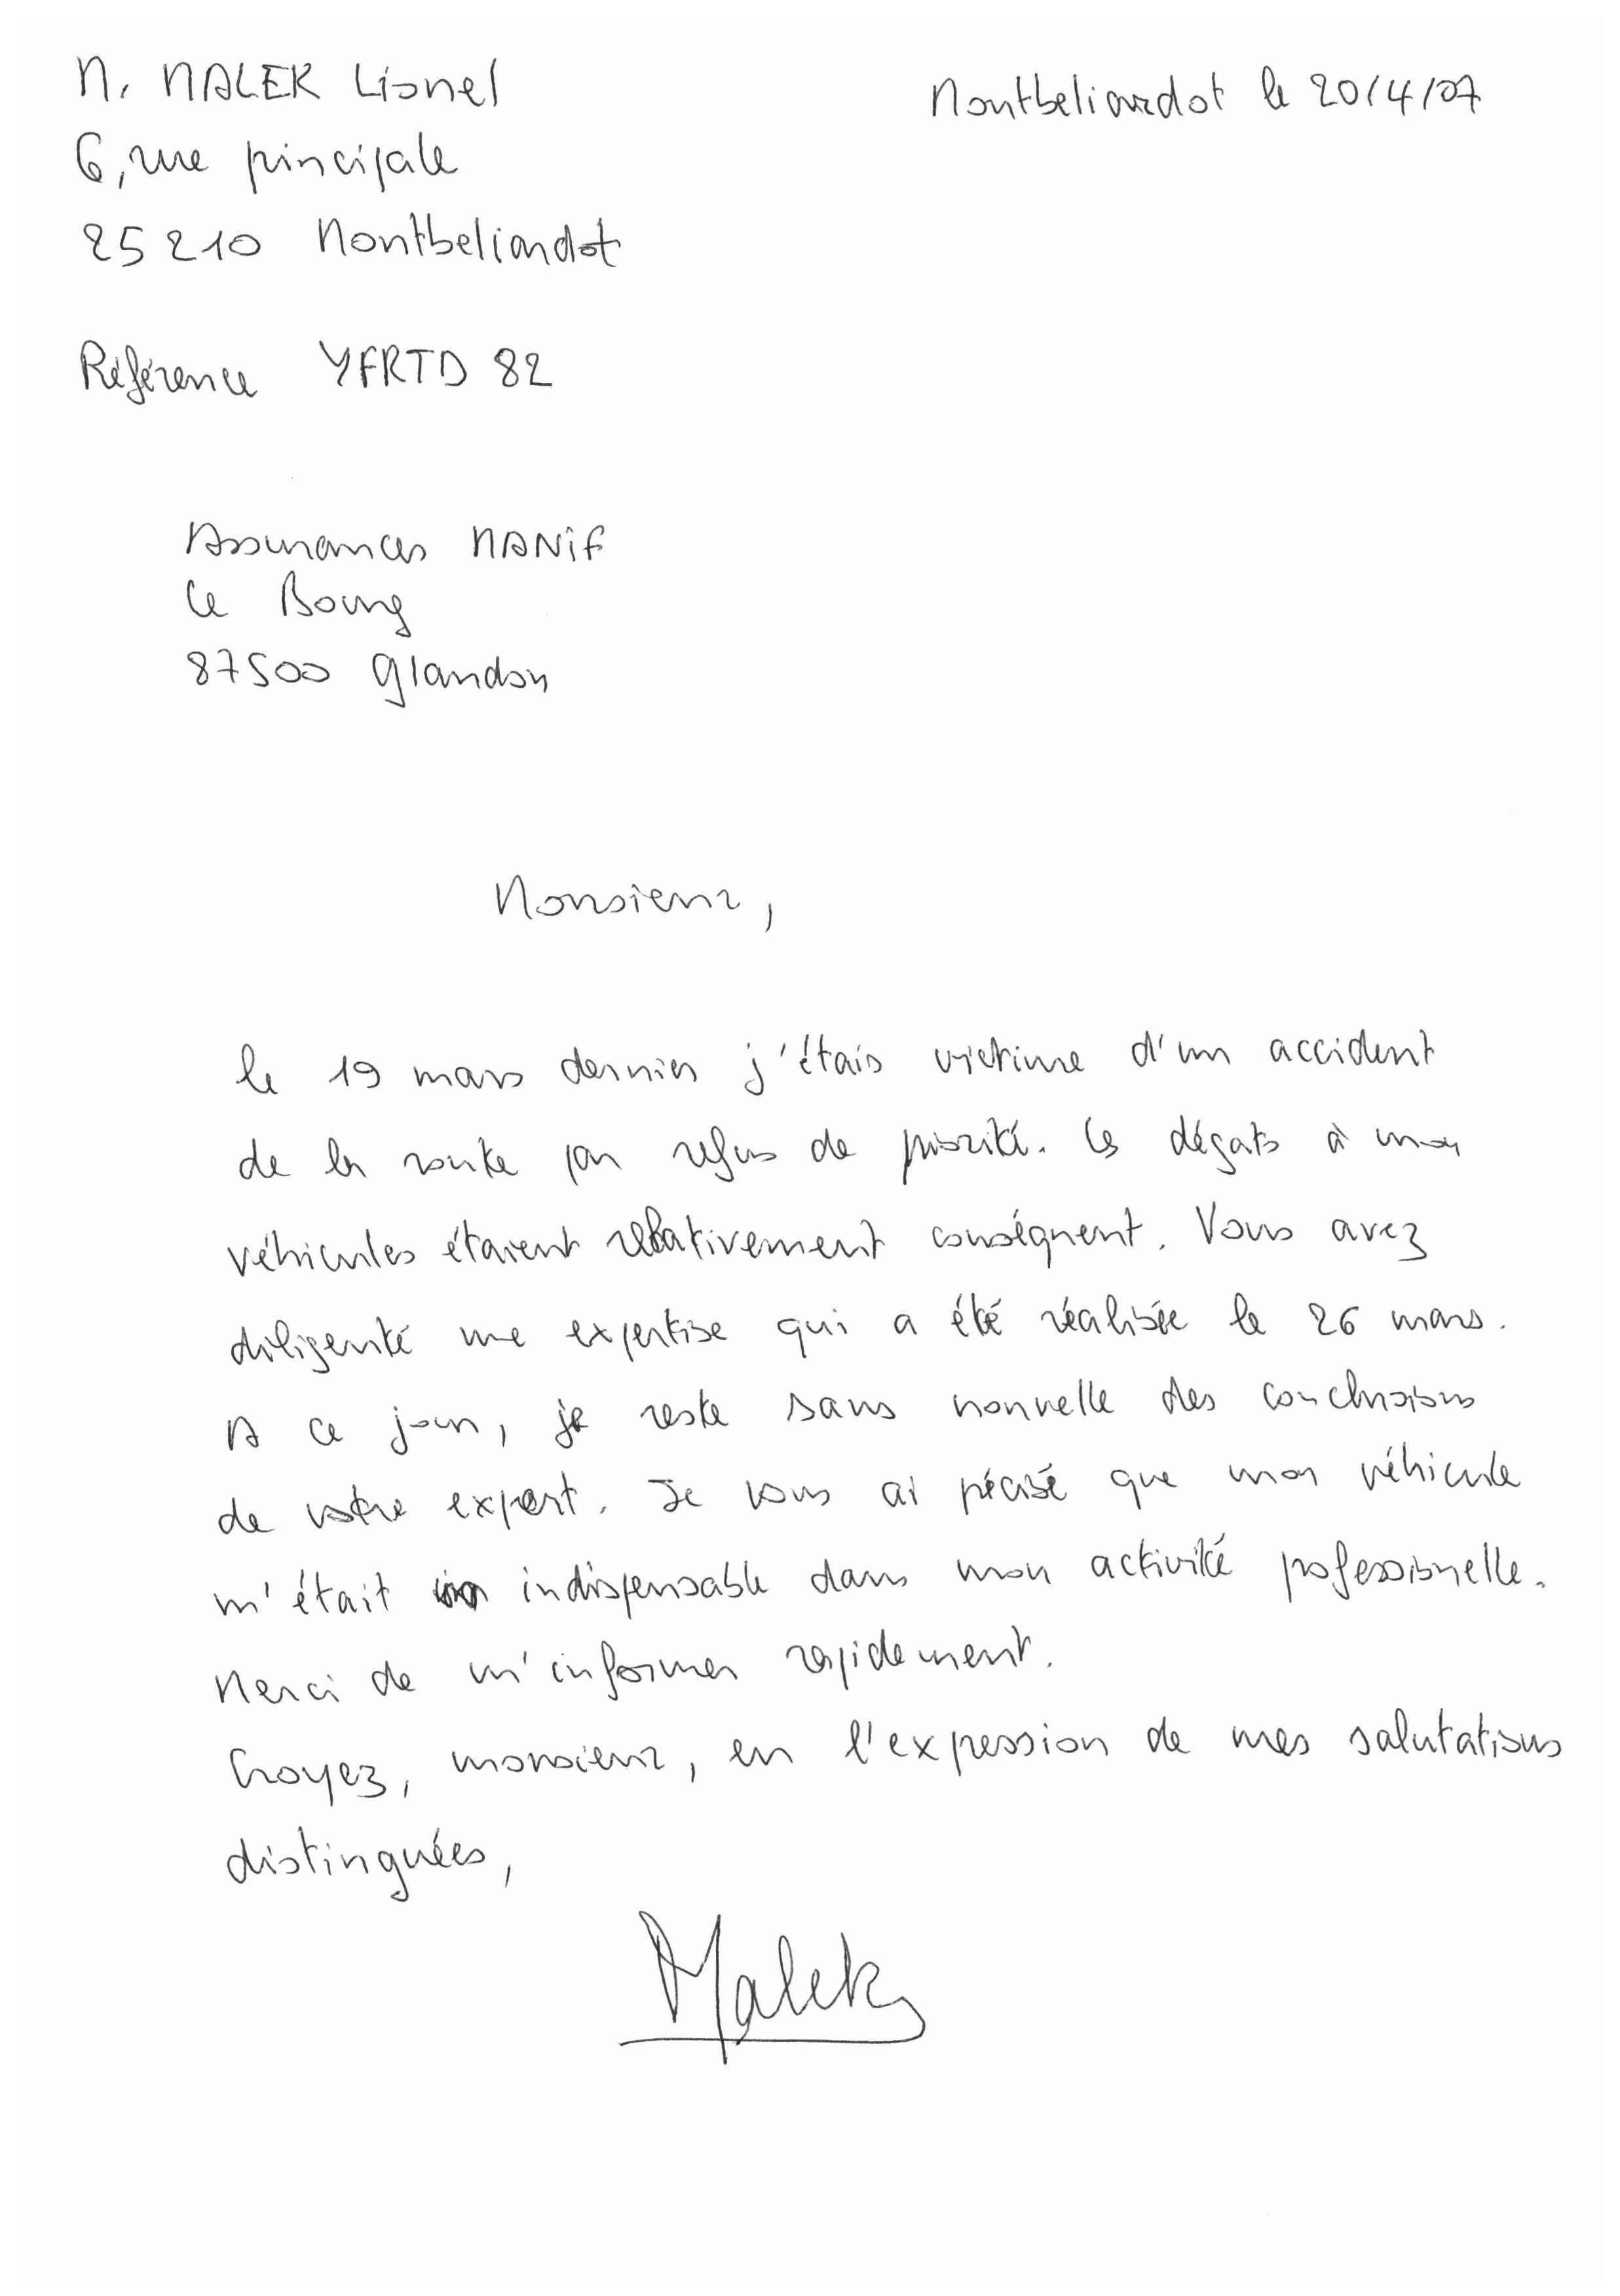 M. MALEK Lionel
Montbeliardot le 20/4/07
6, rue principale
25210 Montbeliardot
Référence YFRTD 82
Assurances MANIF
Le Bourg
87500 Glandon
Monsieur,
Le 19 mars dernier j'étais victime d'un accident
de la route par refus de priorité. Les dégats à mon
véhicules étaient relativement conséquent. Vous avez
diligenté une expertise qui a été réalisée le 26 mars.
A ce jour, je reste sans nouvelle des conclusions
de votre expert. Je vous ai précisé que mon véhicule
m'était indispensable dans mon activité professionnelle.
Merci de m'informer rapidement.
Croyez, monsieur, en l'expression de mes salutations
distinguées,
Malek